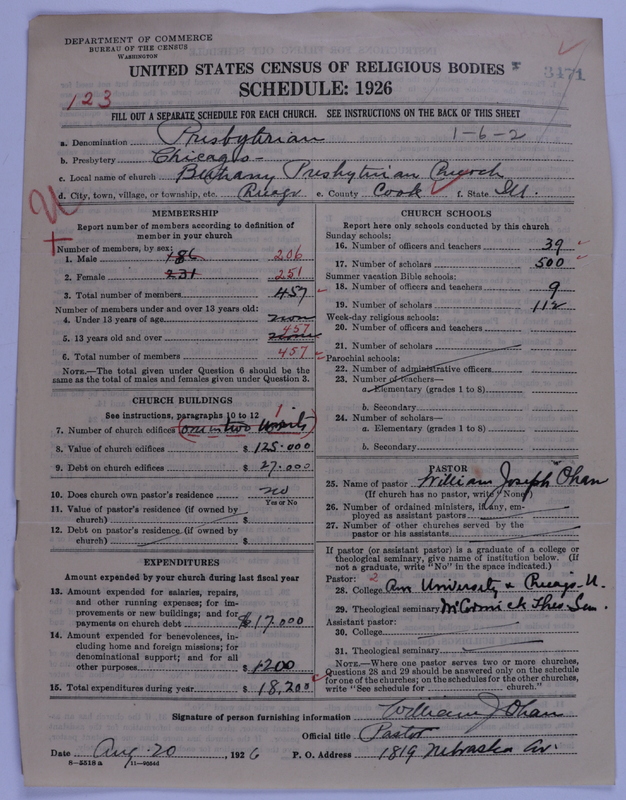 DEPARTMENT OF COMMERCE
BUREAU OF THE CENSUS
WASHINGTON
UNITED STATES CENSUS OF RELIGIOUS BODIES
3171
SCHEDULE: 1926
123
FILL OUT A SEPARATE SCHEDULE FOR EACH CHURCH. SEE INSTRUCTIONS ON THE BACK OF THIS SHEET
a. Denomination Presbyterian 1-6-2
b. Presbytery Chicago
c. Local name of church Bethany Presbyterian Church
d. City, town, village, or township, etc. Chicago e. County Cook f. State Ill.
MEMBERSHIP
Report number of members according to definition of
member in your church
Number of members, by sex:
1. Male 186 206
2. Female 231 251
3. Total number of members 457
Number of members under and over 13 years old:
4. Under 13 years of age
5. 13 years old and over 457
6. Total number of members 457
NOTE.—The total given under Question 6 should be the
same as the total of males and females given under Question 3.
CHURCH BUILDINGS
See instructions, paragraphs 10 to 12
7. Number of church edifices (one in two units) 1
8. Value of church edifices $ 125.000
9. Debt on church edifices $ 27.000
10. Does church own pastor's residence no
Yes or No
11. Value of pastor's residence (if owned by
church) $
12. Debt on pastor's residence (if owned by
church) $
EXPENDITURES
Amount expended by your church during last fiscal year
13. Amount expended for salaries, repairs,
and other running expenses; for im-
provements or new buildings; and for
payments on church debt $17.000
14. Amount expended for benevolences, in-
cluding home and foreign missions; for
denominational support; and for all
other purposes $1200
15. Total expenditures during year $ 18,200
CHURCH SCHOOLS
Report here only schools conducted by this church
Sunday schools:
16. Number of officers and teachers 39
17. Number of scholars 500
Summer vacation Bible schools:
18. Number of officers and teachers 9
19. Number of scholars 112
Week-day religious schools:
20. Number of officers and teachers
21. Number of scholars
Parochial schools:
22. Number of administrative officers
23. Number of teachers—
a. Elementary (grades 1 to 8)
b. Secondary
24. Number of scholars—
a. Elementary (grades 1 to 8)
b. Secondary
PASTOR
25. Name of pastor William Joseph Ohan
(If church has no pastor, write "None")
26. Number of ordained ministers, if any, em-
ployed as assistant pastors
27. Number of other churches served by the
pastor or his assistants
If pastor (or assistant pastor) is a graduate of a college or
theological seminary, give name of institution below. (If
not a graduate, write "No" in the space indicated.)
Pastor: 2
28. College University & Chicago U.
29. Theological seminary McCormick Theo. Sem.
Assistant pastor:
30. College
31. Theological seminary
NOTE.—Where one pastor serves two or more churches,
Questions 28 and 29 should be answered only on the schedule
for one of the churches; on the schedules for the other churches,
write "See schedule for church."
Signature of person furnishing information William J. Ohan
Official title Pastor
Date Aug. 20, 1926 P. O. Address 1819 Nebraska Av.
8-5518a